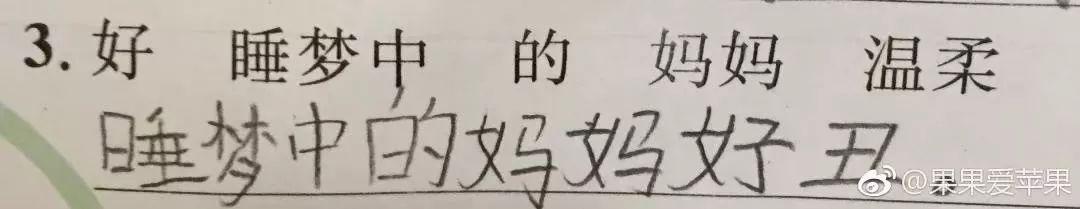 3. 好 睡梦中 的 妈妈 温柔
睡梦中的妈妈好丑.
@果果爱苹果